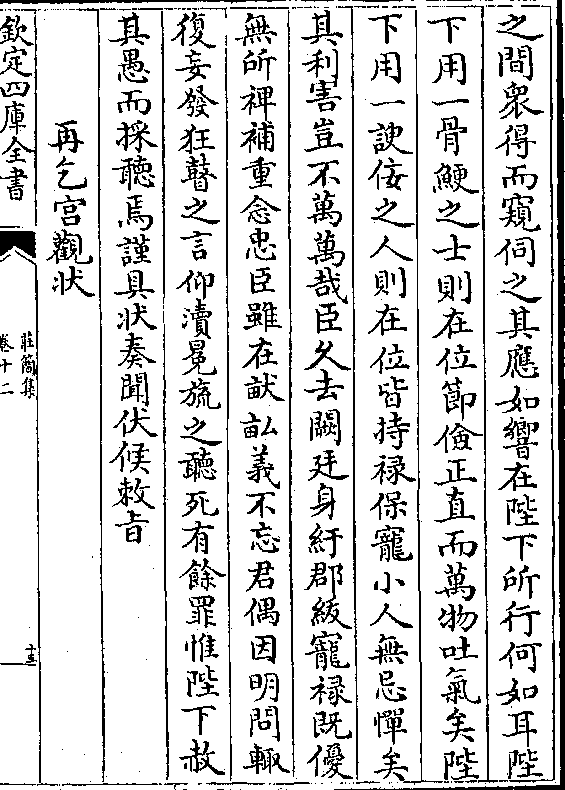 之間衆得而窺伺之其應如響在陛下所行何如耳陛
下用一骨鯁之士則在位節儉正直而萬物吐氣矣陛
下用一諛佞之人則在位皆持禄保寵小人無忌憚矣
其利害豈不萬萬哉臣久去闕廷身紆郡紱寵禄既優
無所裨補重念忠臣雖在畎畝義不忘君偶因明問輙
復妄發狂瞽之言仰瀆冕旒之聽死有餘罪惟陛下赦
其愚而採聽焉謹具状奏聞伏候敕㫖
再乞宫觀状
欽定四庫全書
莊簡集
卷十二
十三